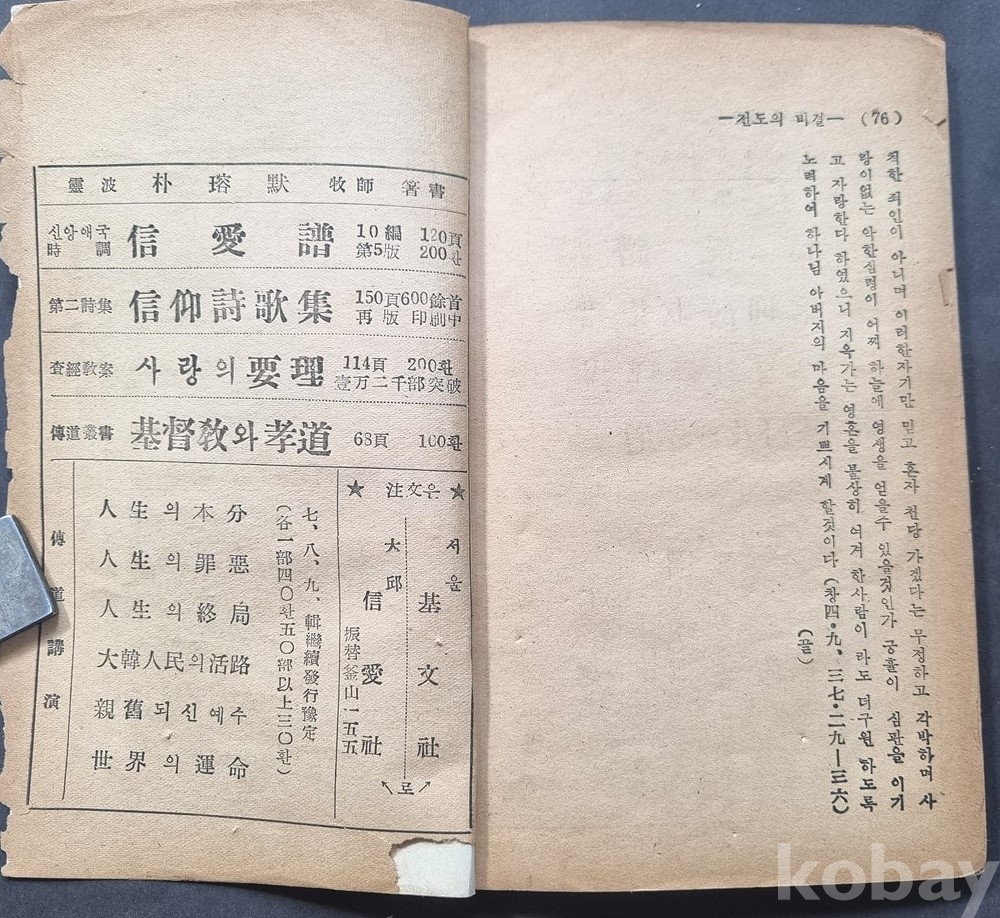 —전도의 비결— (76)
치한 죄인이 아니며 이러한자기만 믿고 혼자 천당 가겠다는 무정하고 각박하며 사
랑이없는 악한심령이 어찌 하늘에 영생을 얻을수 있을것인가 긍휼이 심판을 이기
고 자랑한다 하였으니 지옥가는 영혼을 불상히 여겨 한사람이 라도 더구원 하도록
노력하여 하나님 아버지의 마음을 기쁘시게 할것이다 (창四·九、三七·二九—三六)
(끝)
靈波 朴瑢默 牧師 著書
신앙애국時調 信愛譜 10編 120頁
第5版 200환
第二詩集 信仰詩歌集 150頁 600餘首
再版 印刷中
査經敎案 사랑의 要理 114頁 200환
壹万二千部突破
傳道叢書 基督敎와 孝道 68頁 100환
傳道講演
人生의 本分
人生의 罪惡
人生의 終局
大韓人民의 活路
親舊되신 예수
世界의 運命
七、八、九、輯繼續發行豫定
(各一部四〇환五〇部以上三〇환)
★ 注文은 ★
서울 基文社
大邱 信愛社
振替釜山一五五
↖로↗
kobay